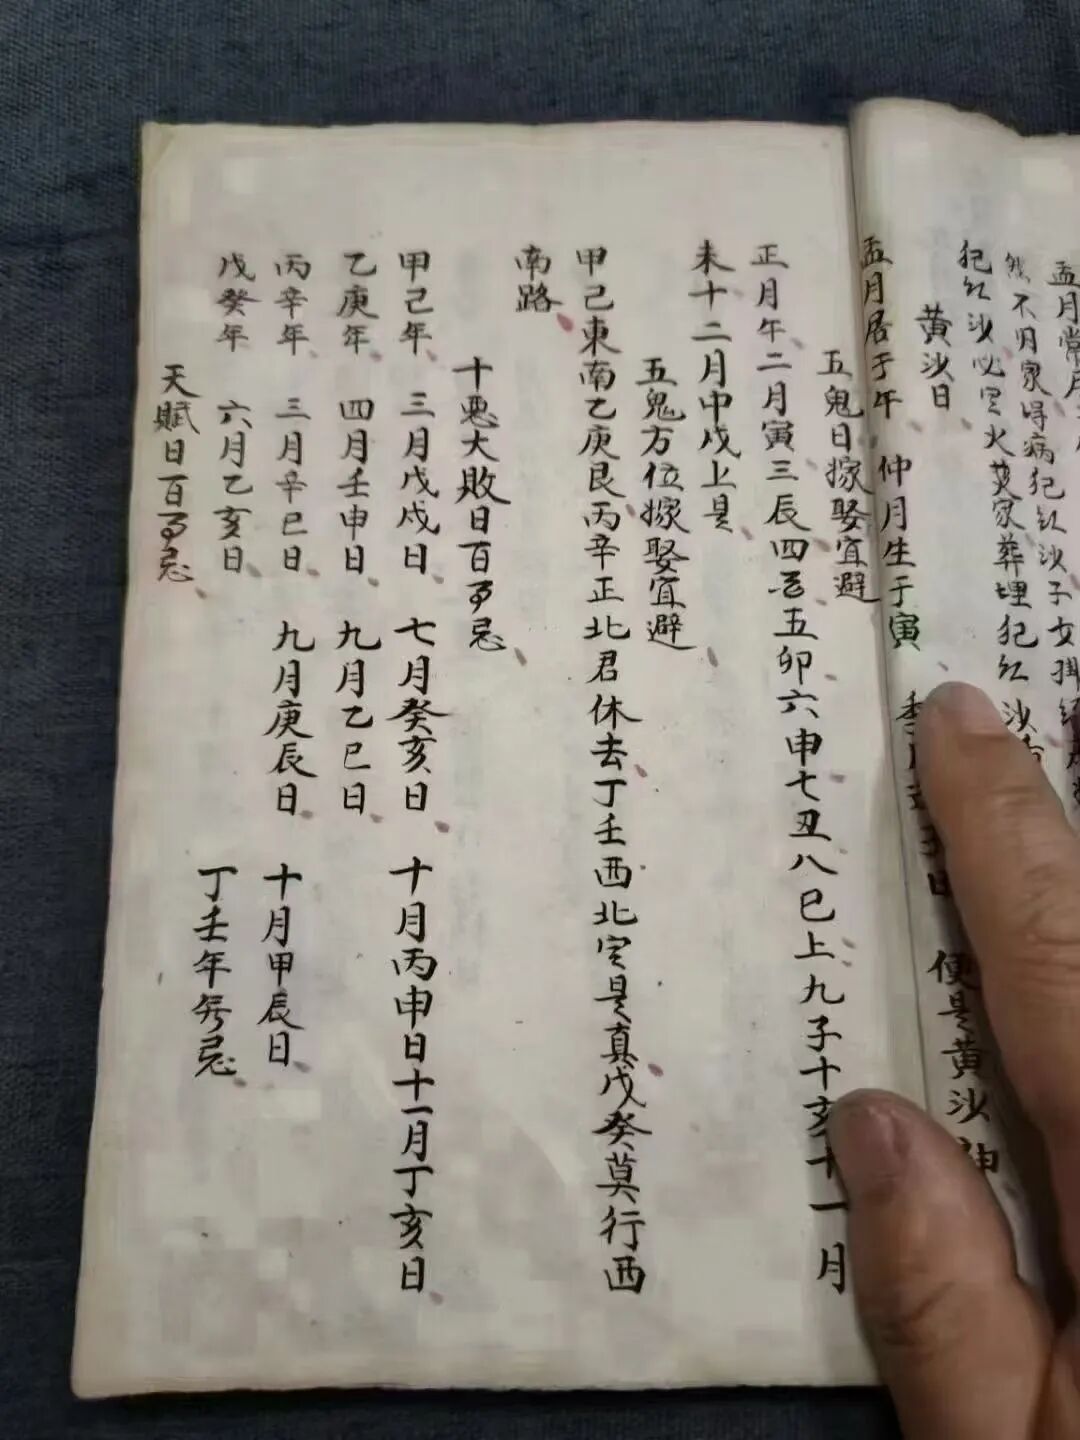 孟月常
然不月家得病犯红沙子女掛
犯红沙必定火葬家葬埋犯红沙
黄沙日
孟月居于午 仲月生于寅 季月 子日 便是黄沙神
五鬼日嫁娶宜避
正月午二月寅三辰四酉五卯六申七丑八巳上九子十亥十一月
未十二月中戌上是
五鬼方位嫁娶宜避
甲己東南乙庚艮丙辛正北君休去丁壬西北定是真戊癸莫行西
南路
十悪大敗日百事忌
甲己年 三月戊戌日 七月癸亥日 十月丙申日十一月丁亥日
乙庚年 四月壬申日 九月乙巳日
丙辛年 三月辛巳日 九月庚辰日 十月甲辰日
戊癸年 六月乙亥日 丁壬年兮忌
天賦日百事忌